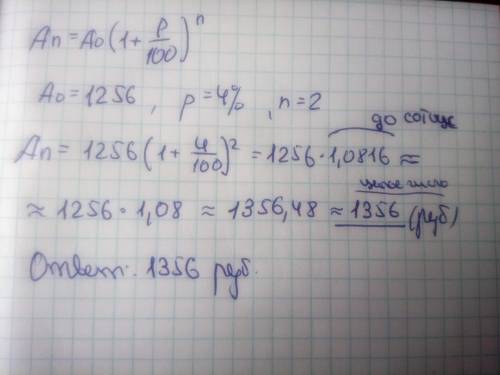 An = A0(1 + p/100)^n
A0 = 1256, p = 4%, n = 2
до сотых
An = 1256(1 + 4/100)^2 = 1256·1,0816 ≈
целое число
≈ 1256·1,08 ≈ 1356,48 ≈ 1356 (руб)
Ответ: 1356 руб.